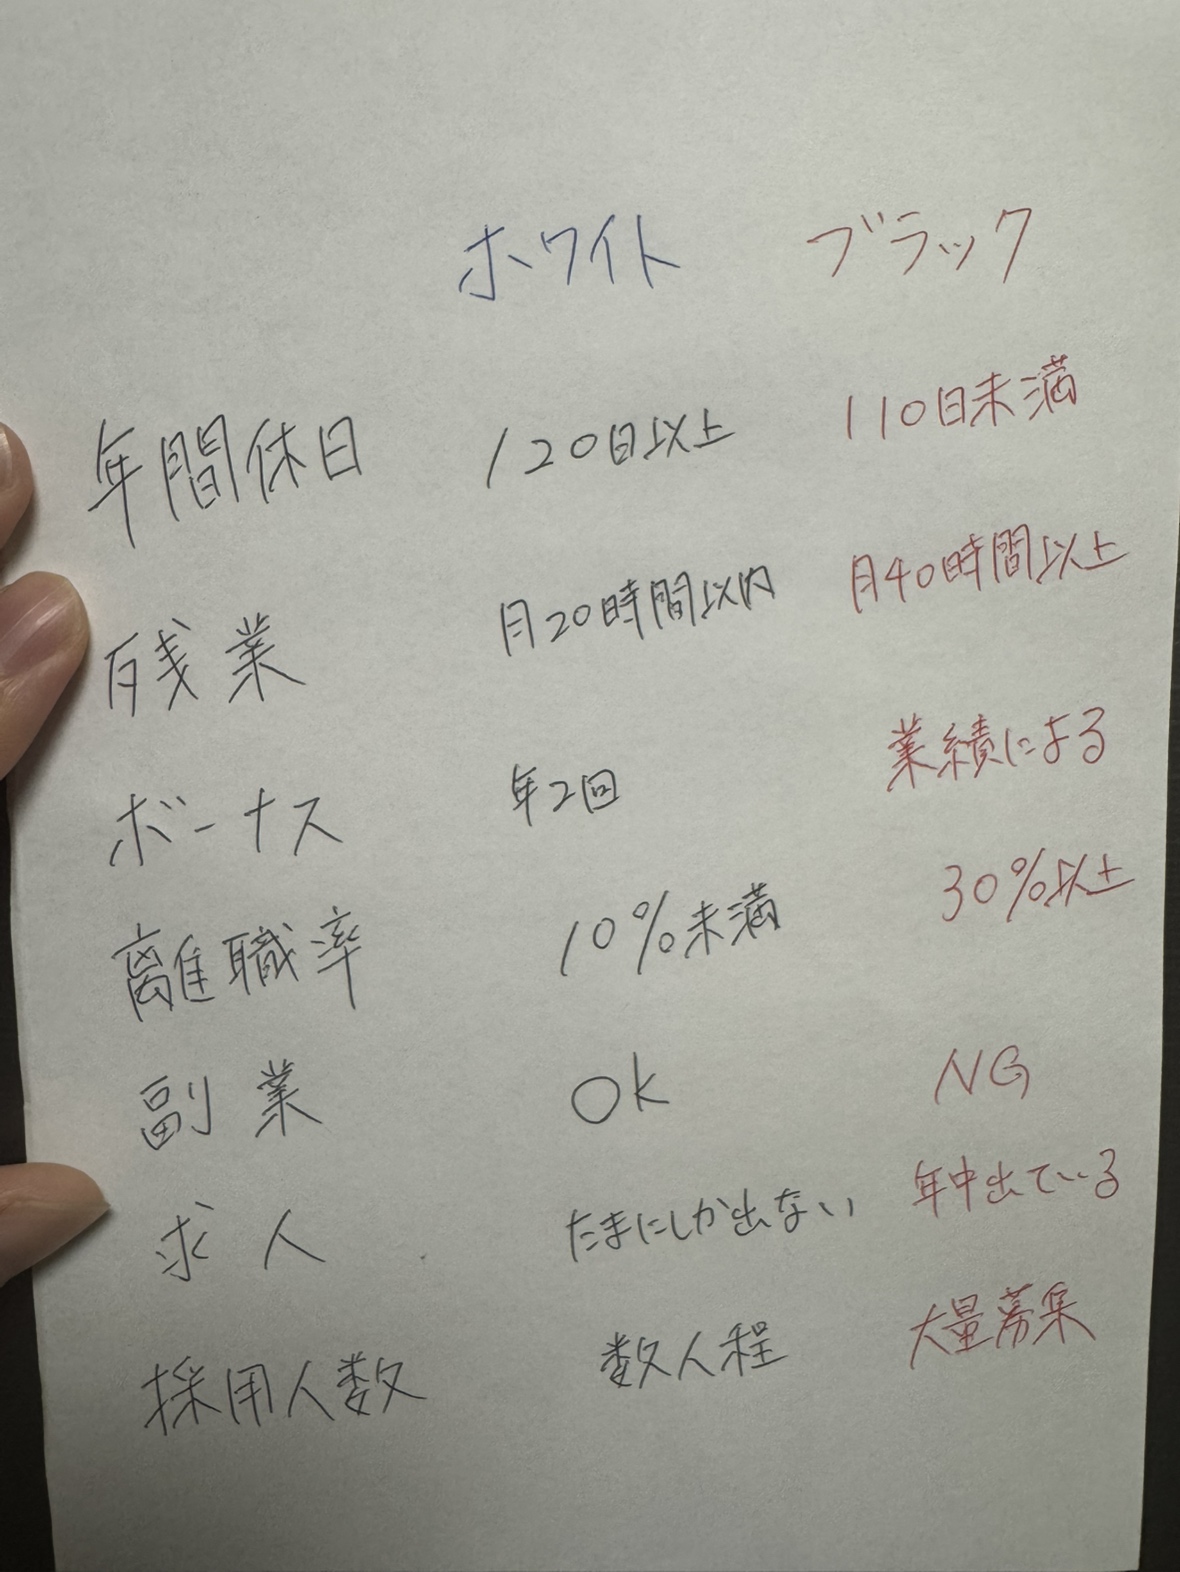 ホワイト ブラック
年間休日 120日以上 110日未満
残業 月20時間以内 月40時間以上
ボーナス 年2回 業績による
離職率 10%未満 30%以上
副業 OK NG
求人 たまにしか出ない 年中出ている
採用人数 数人程 大量募集